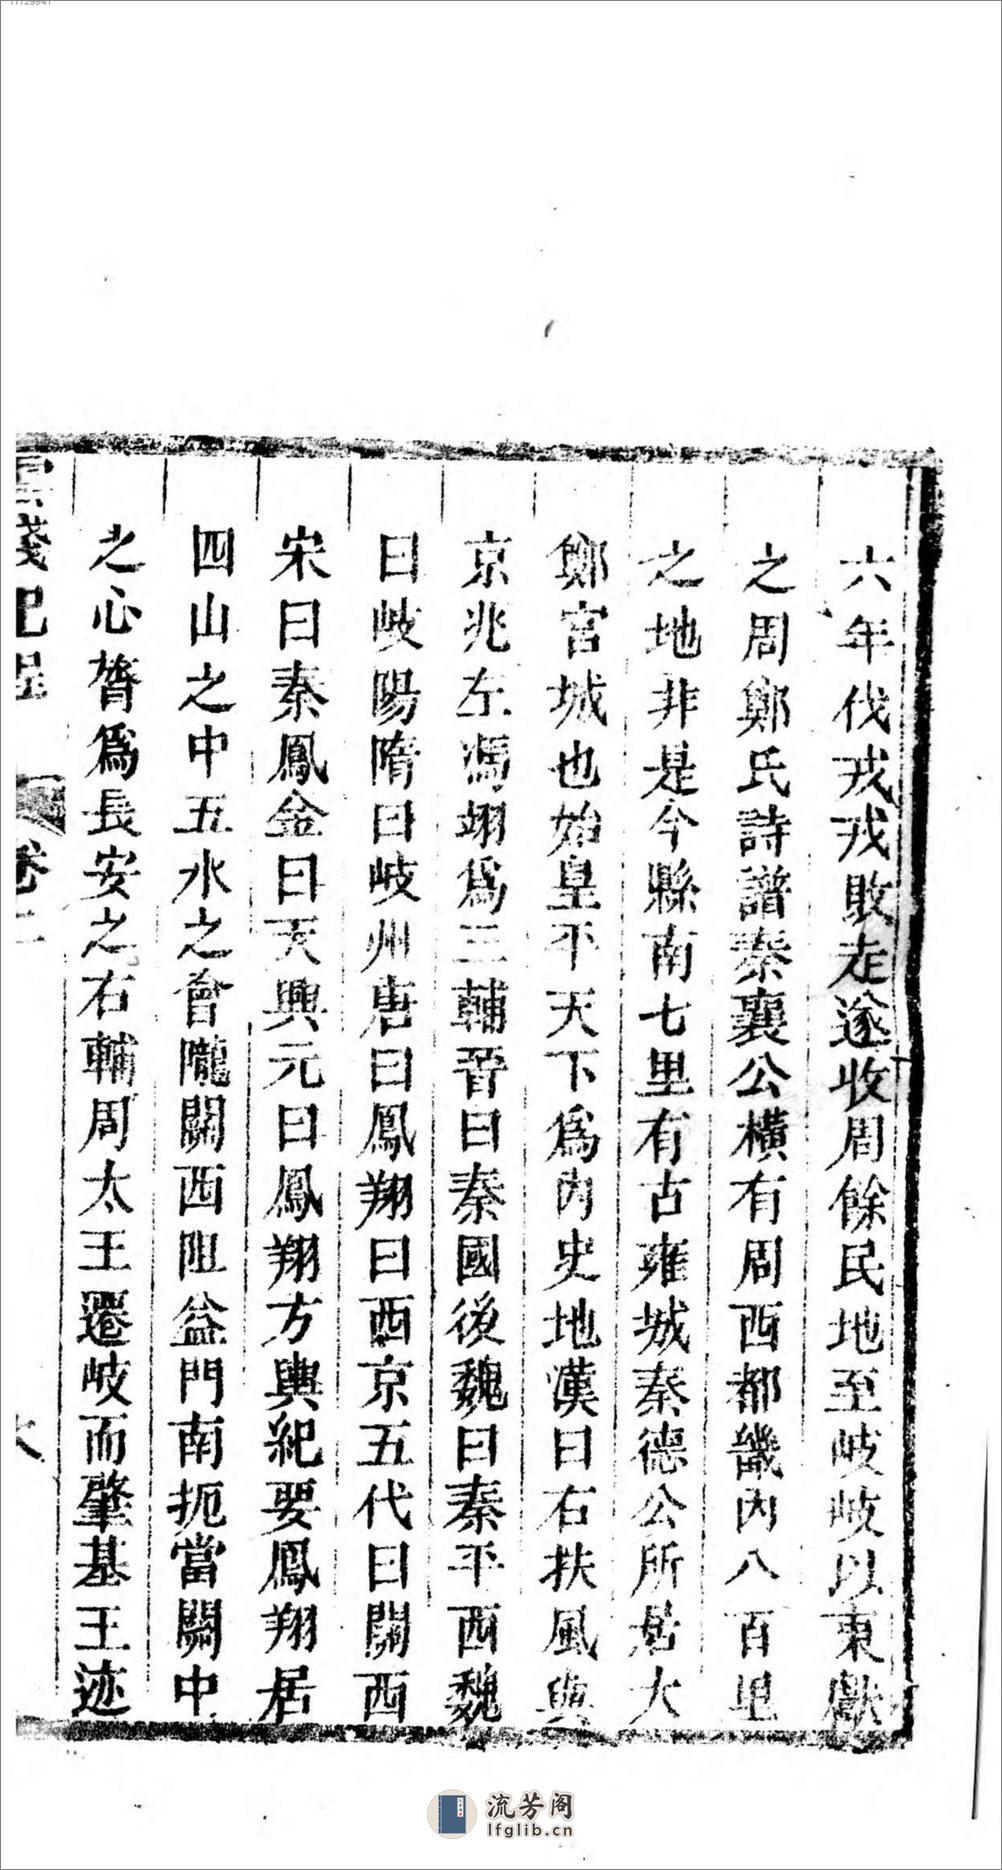 六年伐戎戎敗走遂收周餘民地至岐岐以東獻
之周鄭氏詩譜秦襄公橫有周西都畿內八百里
之地非是今縣南七里有古雍城秦德公所居大
鄭宮城也始皇平天下爲內史地漢曰右扶風與
京兆左馮翊爲三輔晉曰秦國後魏曰秦平西魏
曰岐陽隋曰岐州唐曰鳳翔曰西京五代曰關西
宋曰秦鳳金曰天興元曰鳳翔方輿紀要鳳翔居
四山之中五水之會隴關西阻益門南扼當關中
之心膂爲長安之右輔周太王遷岐而肇基王迹
棧記程
卷二
流芳阁
lfglib.cn
11129941